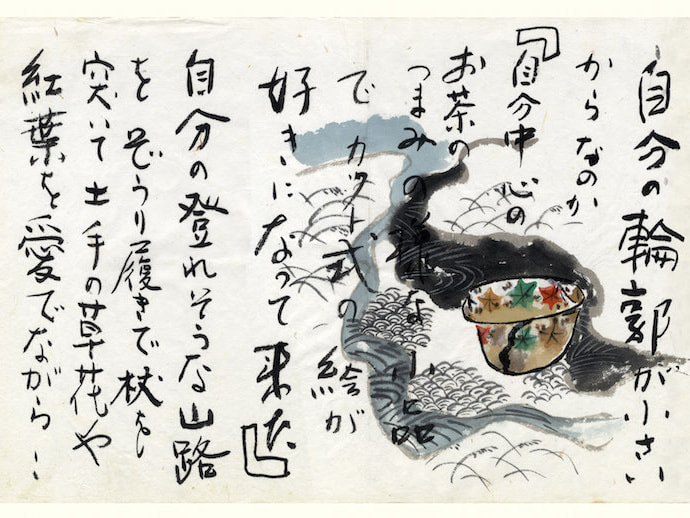 自分の輪郭が小さい
からなのか
『自分中心の
お茶の
つまみの様な小品
でカット式の絵が
好きになって来た』
自分の登れそうな山路
をぞうり履きで杖を
突いて土手の草花や
紅葉を愛でながら…